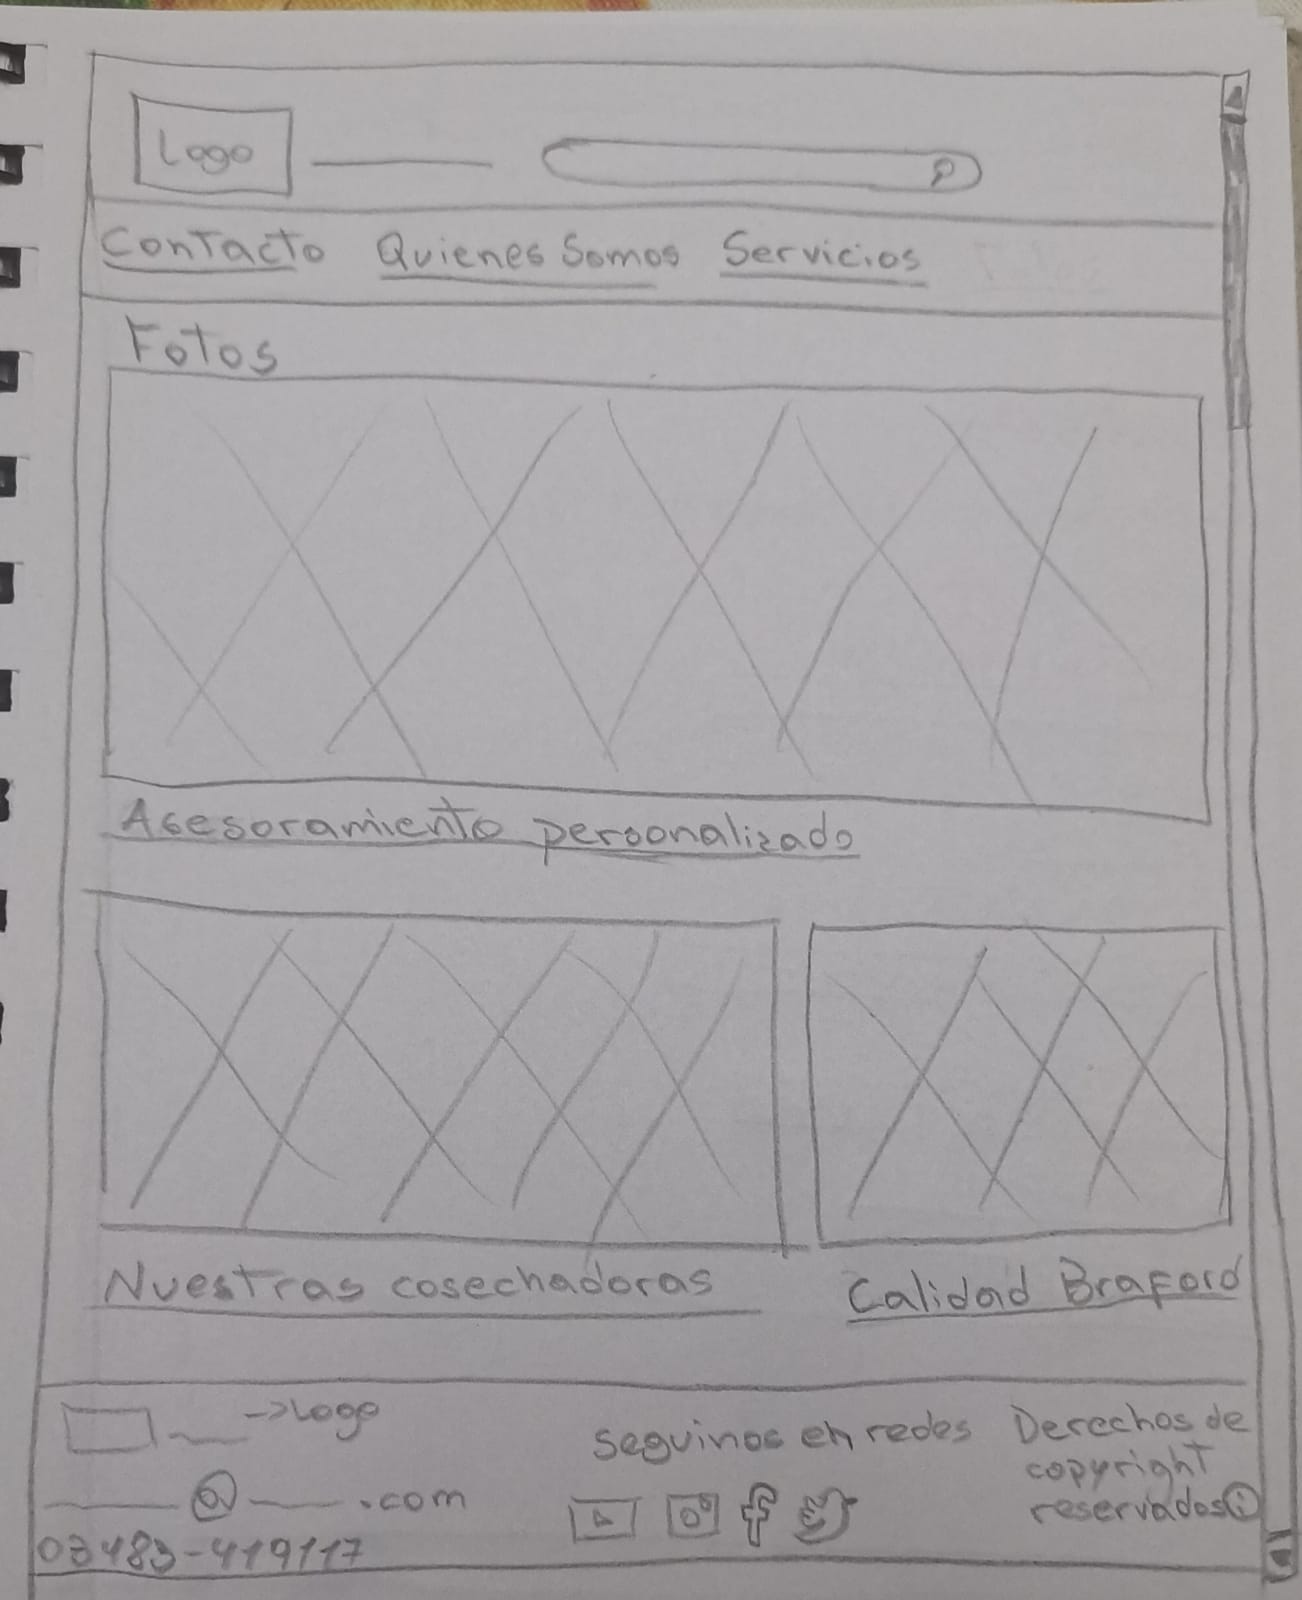 Logo
Contacto Quienes Somos Servicios
Fotos
Asesoramiento personalizado
Nuestras cosechadoras
Calidad Braford
->Logo
@ .com
03483-419117
Seguinos en redes
Derechos de
copyright
reservados